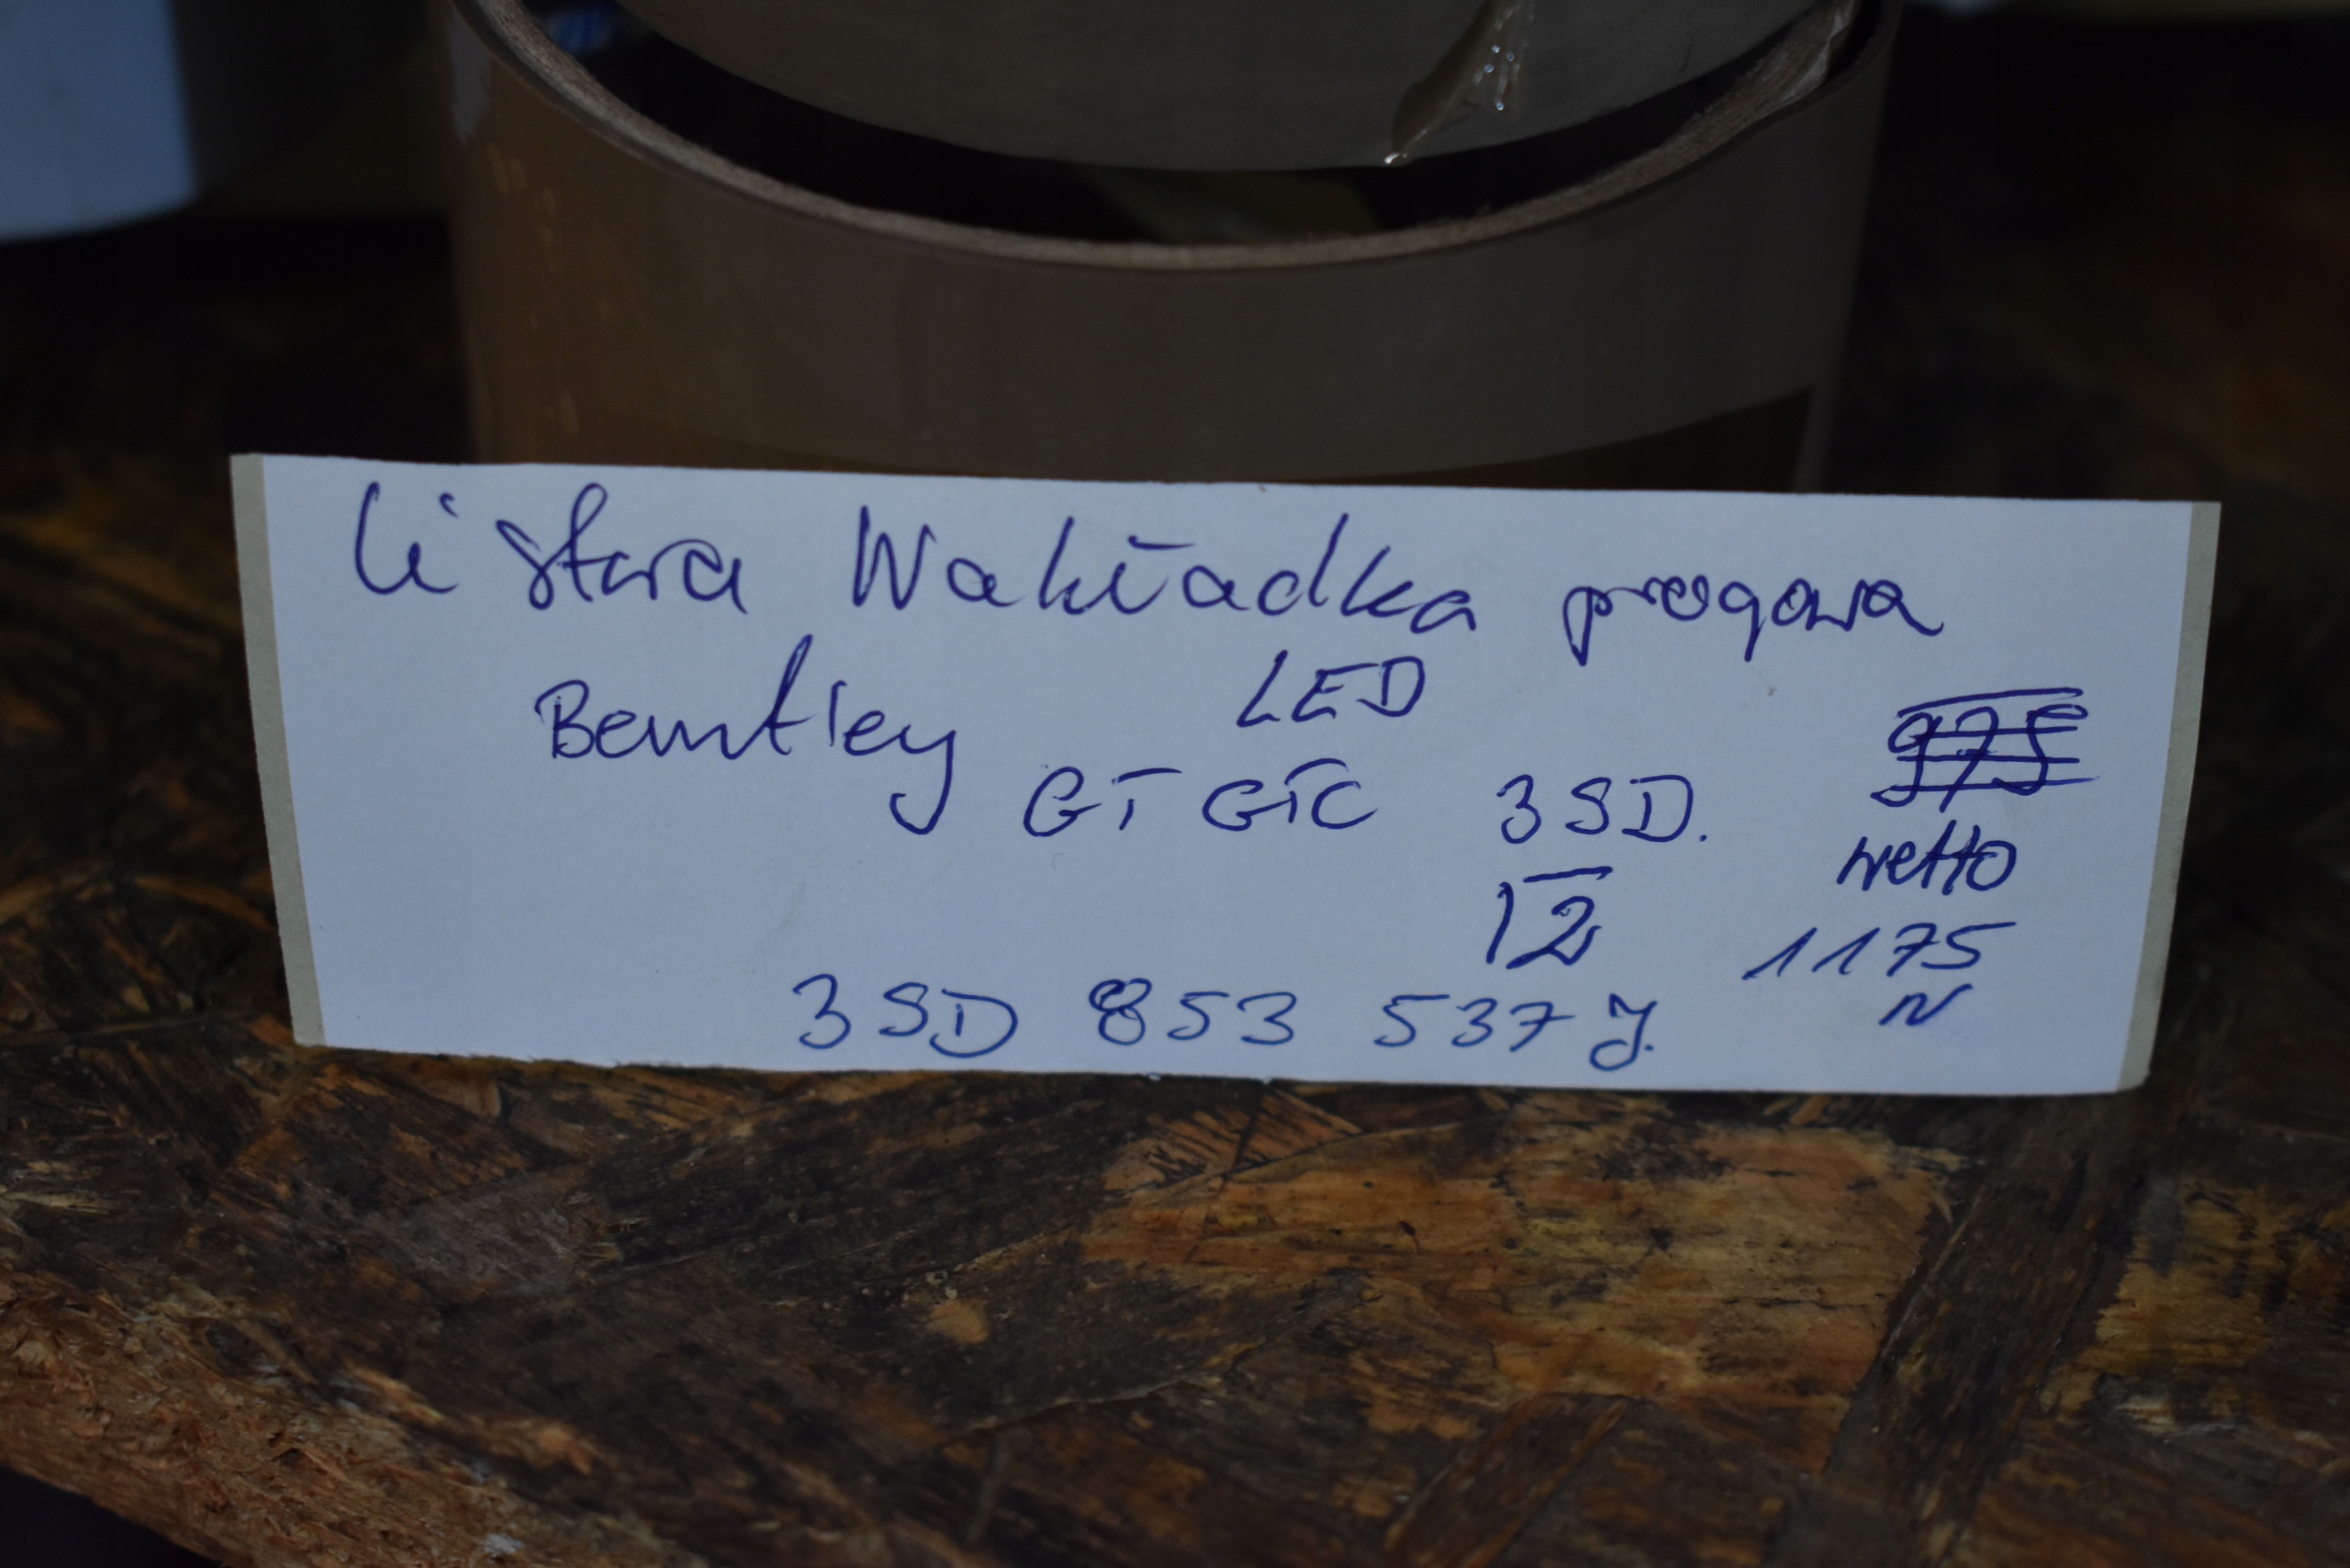 Listwa Wakładka progowa
Bemtley LED
GT GTC 3SD.
975
netto
12
1175
N
3SD 853 537 J.